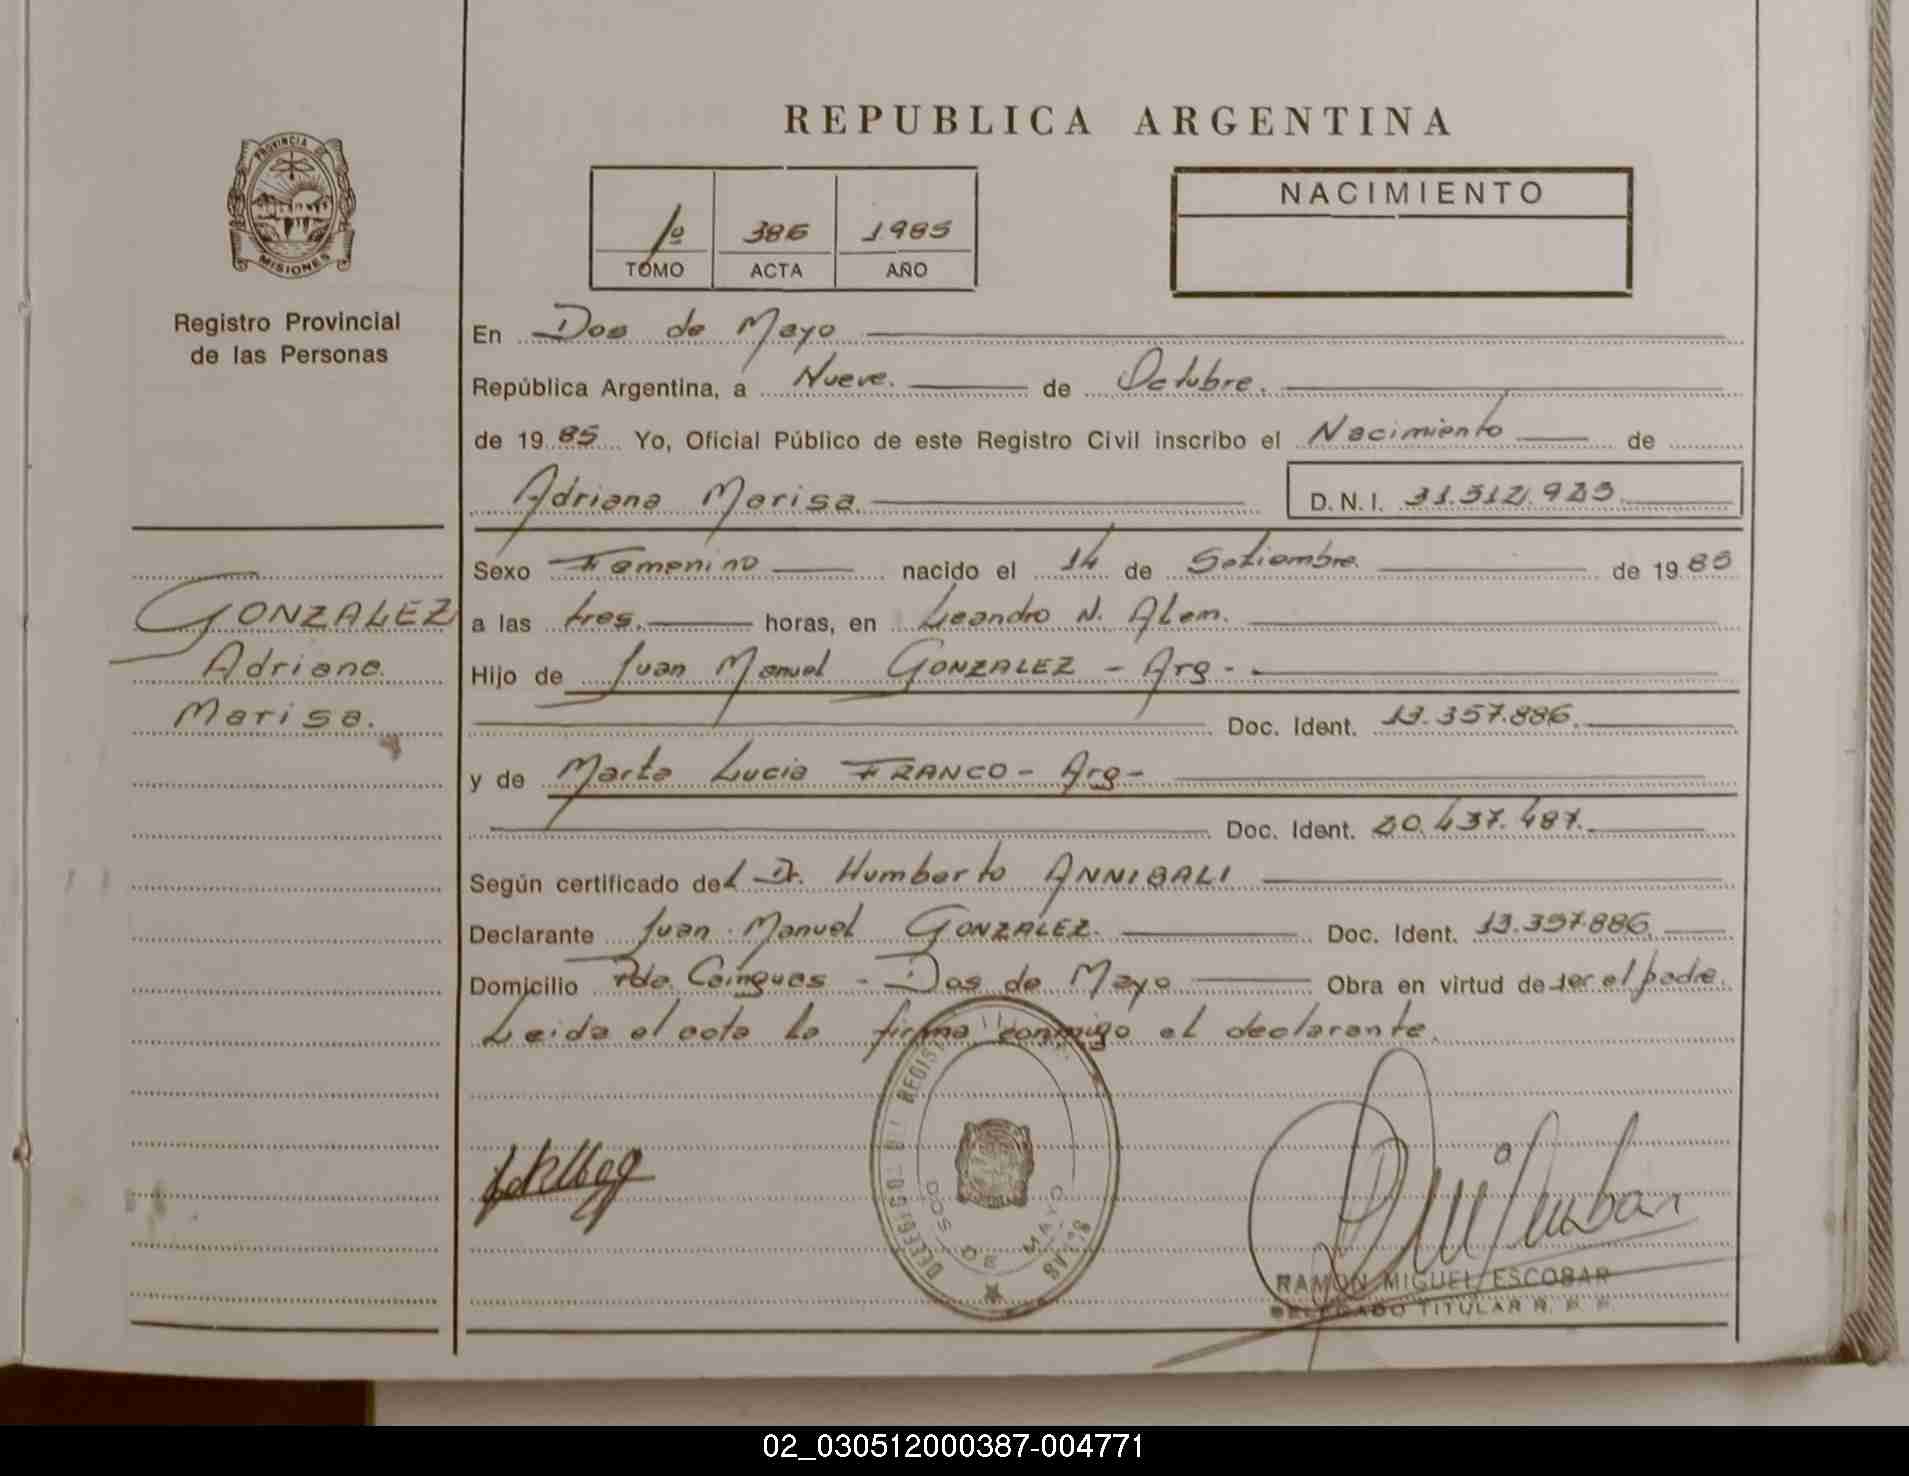 REPUBLICA ARGENTINA
PROVINCIA DE
MISIONES
Registro Provincial
de las Personas
1º 386 1985
TOMO ACTA AÑO
NACIMIENTO
En Dos de Mayo
República Argentina, a Nueve. de Octubre.
de 1985 Yo, Oficial Público de este Registro Civil inscribo el Nacimiento de
Adriana Marisa D.N.I.
Sexo Femenino nacido el 14 de Setiembre. de 1985
GONZALEZ
Adriana
Marisa.
a las tres. horas, en Leandro N. Alem.
Hijo de Juan Manuel GONZALEZ - Arg -
Doc. Ident. 13.357.886.
y de Marta Lucia FRANCO - Arg -
Doc. Ident. 20.437.487.
Según certificado del Dr. Humberto ANNIBALI
Declarante Juan Manuel GONZALEZ. Doc. Ident. 13.357.886
Domicilio Pda. Cainguas - Dos de Mayo Obra en virtud de ser el padre.
Leida el acta la firma conmigo el declarante.
DOS DE MAYO
RAMON MIGUEL ESCOBAR
DELEGADO TITULAR R. P. P.
02_030512000387-004771